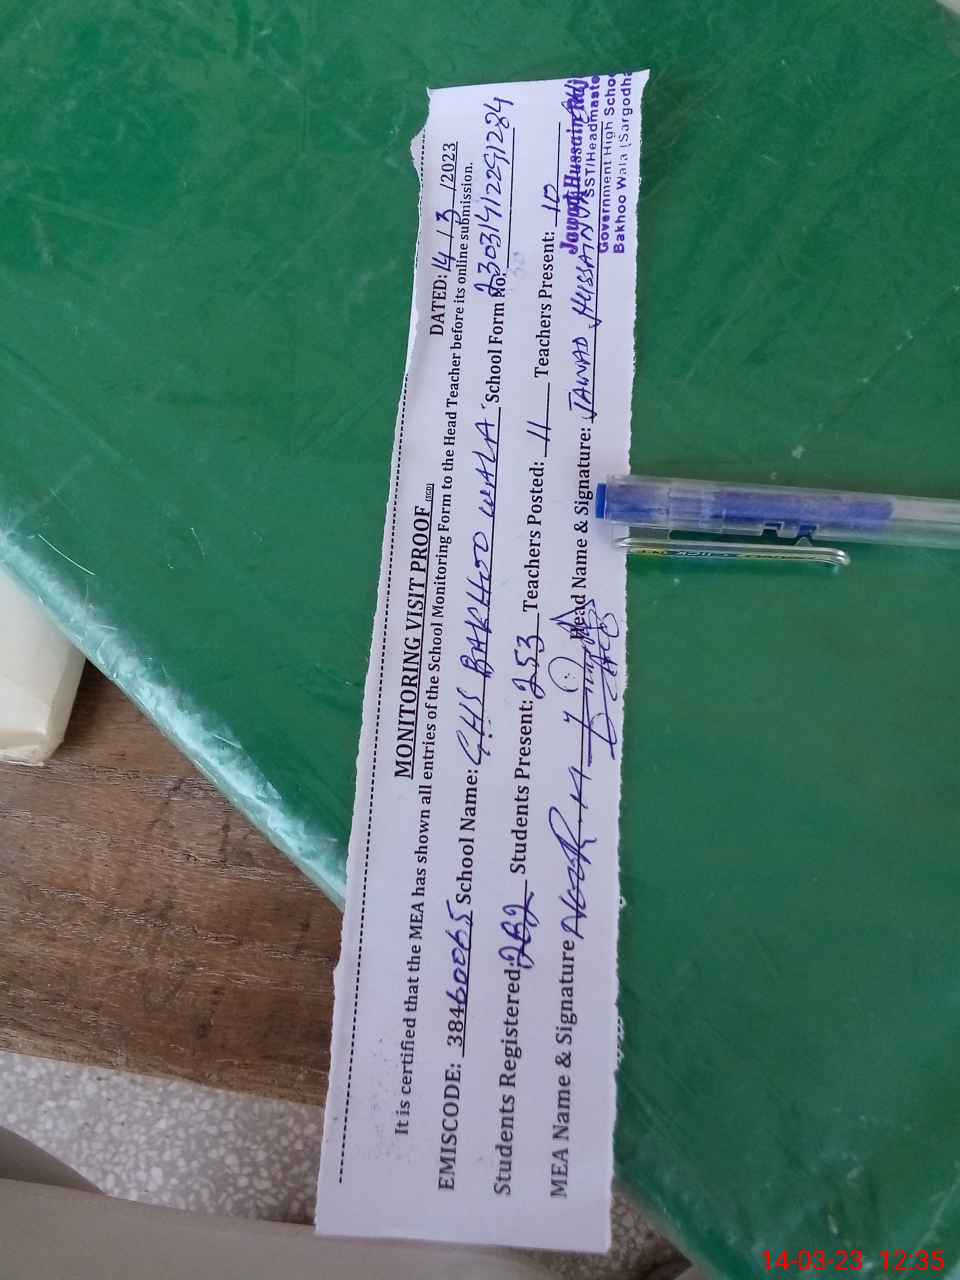 MONITORING VISIT PROOF (SGD)
DATED: 14/3/2023
It is certified that the MEA has shown all entries of the School Monitoring Form to the Head Teacher before its online submission.
EMISCODE: 38460065 School Name: GHS BAKHOO WALA School Form No.
Students Registered: 282 Students Present: 253 Teachers Posted: 11 Teachers Present: 10
MEA Name & Signature Head Name & Signature: JAWAD HUSSAIN
Jawad Hussain
SST/Headmaste
Government High Schoo
Bakhoo Wala (Sargodha
14-03-23 12:35